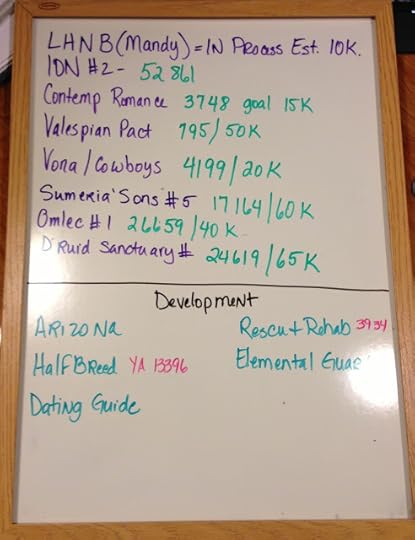 LHNB (Mandy) = IN Process Est. 10K.
IDN #2 - 52861
Contemp Romance 3748 goal 15K
Valespian Pact 795/50K
Vona/Cowboys 4199/20K
Sumeria'Sons #5 17164/60K
Omlec #1 26659/40K
D'Ruid Sanctuary # 24619/65K
Development
ARIZONA
Rescu+Rehab 3934
HalfBreed YA 13396
Elemental
Dating Guide